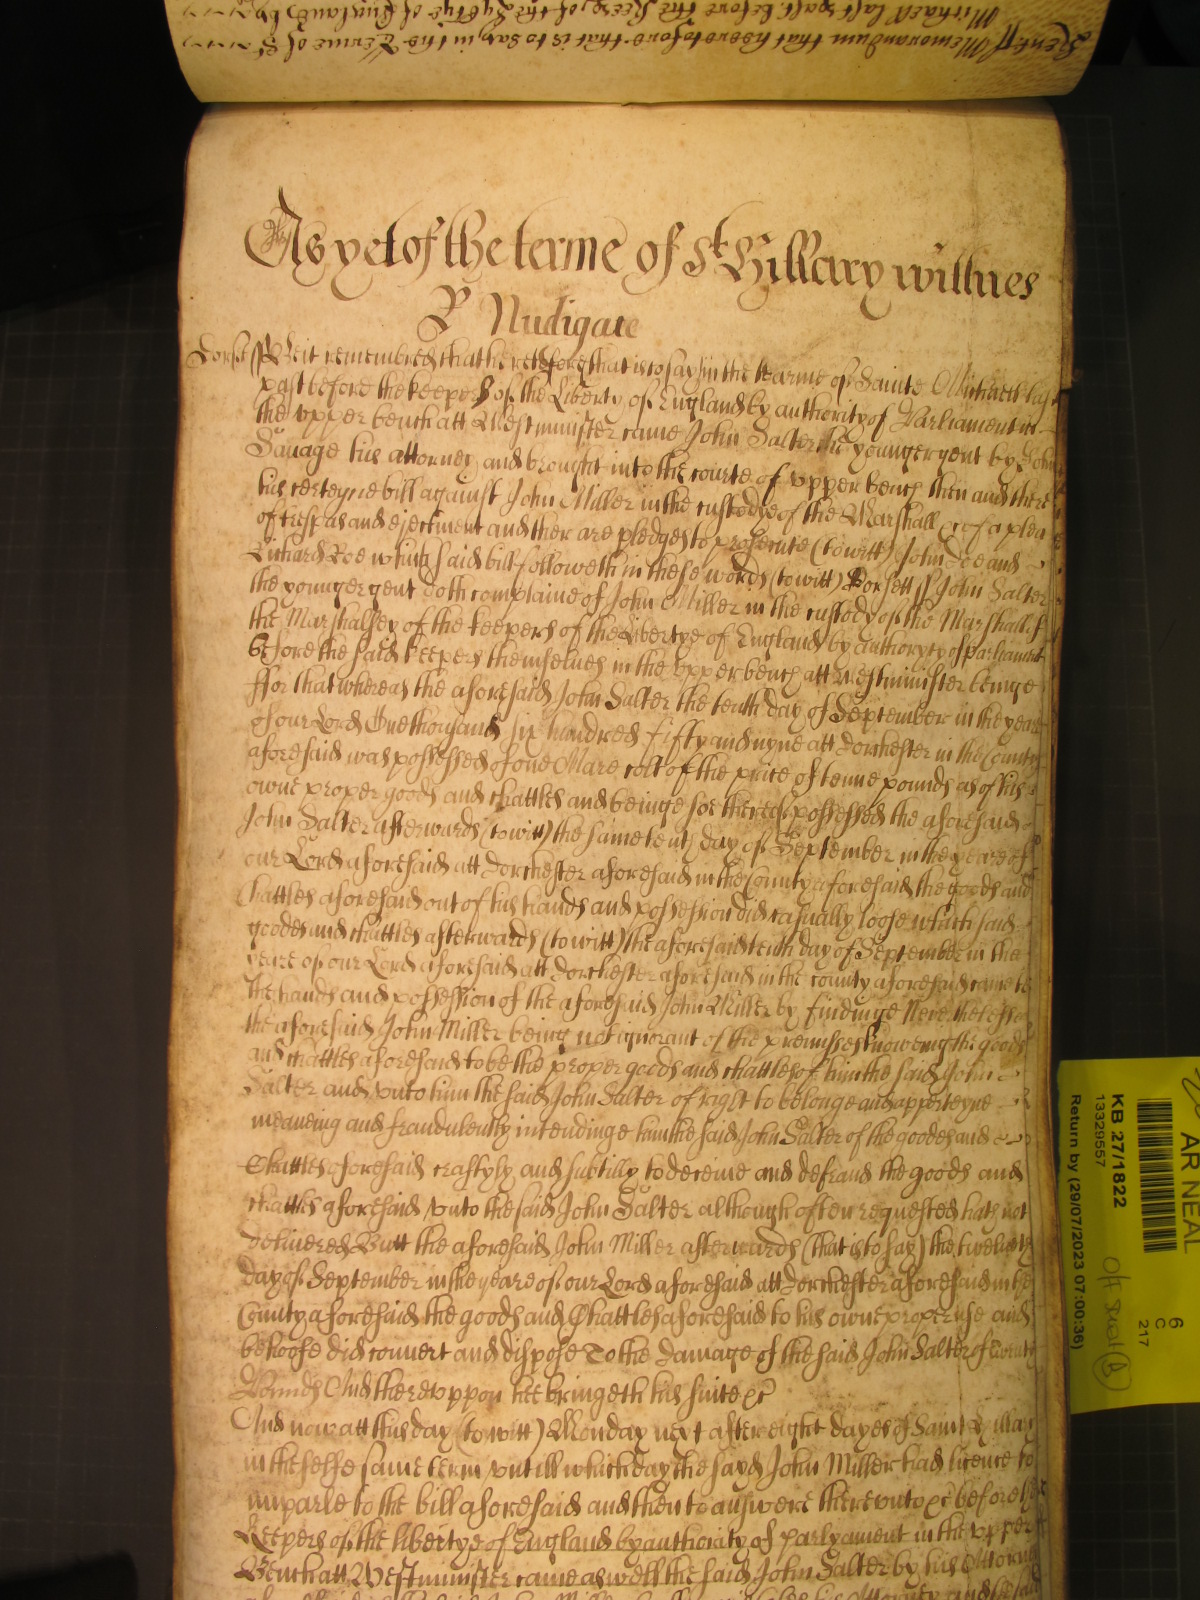 Michaell last past before the Keepers of the Lib'tye of England by
Kent ss Memorandum that heretofore that is to say in the Terme of St
As yet of the terme of St Hillary wittnes
P Nudigate
Dorset ss Be it remembred that heretofore that is to say in the tearme of Sainte Michaell last
past before the keepers of the Liberty of England by authority of Parliament in
the vpper bench att Westminister came John Salter the younger gent by John
Savage his attorney and brought into the courte of vpper bench then and there
his certeyne bill against John Miller in the custodye of the Marshall &c of a plea
of trespas and ejectment and ther are pledges to prosecute (to witt) John Doe and
Richard Roe which said bill followeth in these words (to witt) Dorsett ss John Salter
the younger gent doth complaine of John Miller in the custody of the Marshall of
the Marshalsey of the keepers of the Libertye of England by authoryty of parliament
before the said keepers themselues in the vpper bench att Westminister beinge
ffor that whereas the aforesaid John Salter the tenth day of September in the yeare
of our Lord One thousand six hundred fifty and nyne att Dorchester in the County
aforesaid was possessed of one Mare colt of the price of tenne pounds as of his
owne proper goods and chattles and beinge soe thereof possessed the aforesaid
John Salter afterwards (to witt) the same tenth day of September in the yeare of
our Lord aforesaid att Dorchester aforesaid in the County aforesaid the goods and
Chattles aforesaid out of his hands and possession did casually loose which said
goodes and chattles afterwards (to witt) the aforesaid tenth day of September in the
yeare of our Lord aforesaid att Dorchester aforesaid in the county aforesaid came to
the hands and possession of the aforesaid John Miller by findinge Neverthelesse
the aforesaid John Miller being not ignorant of the premisses knoweing the goods
and chattles aforesaid to be the proper goods and chattles of him the said John
Salter and vnto him the said John Salter of right to belonge and apperteyne
meaneing and fraudulently intendinge him the said John Salter of the goodes and
Chattles aforesaid craftyly and subtilly to deceive and defraud the goods and
chattles aforesaid vnto the said John Salter although often requested hath not
delivered Butt the aforesaid John Miller afterwards (that is to say) the twelveth
day of September in the yeare of our Lord aforesaid att Dorchester aforesaid in the
County aforesaid the goods and Chattles aforesaid to his owne proper use and
behoofe did convert and dispose To the damage of the said John Salter of twenty
Pounds And therevppon hee bringeth his suite &c
And now att this day (to witt) Monday next after eight dayes of Saint Hillary
in the selfe same term vntill which day the sayd John Miller had licence to
imparle to the bill aforesaid and then to answere therevnto &c before the
Keepers of the libertye of England by authority of parlyament in the vpper
Bench att Westminister came aswell the said John Salter by his Attorney
AR NEAL
KB 27/1822
13329557
Return by (29/07/2023 07:00:36)
6
C
217